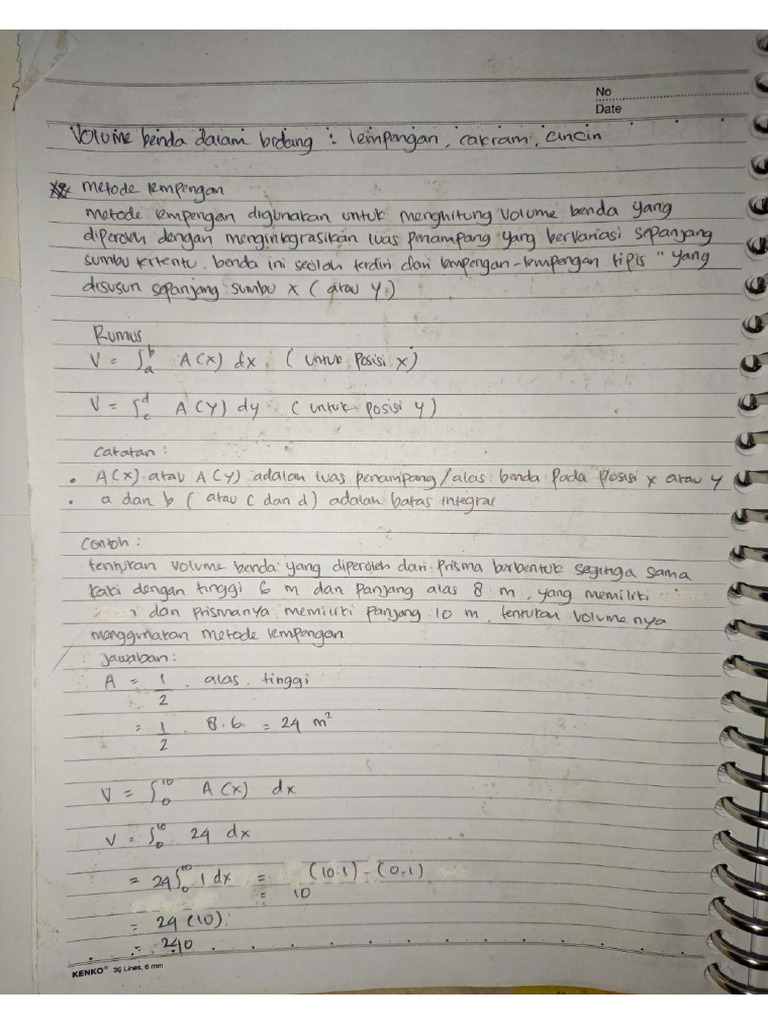 No
Date
Volume benda dalam bidang : lempengan, cakram, cincin
Metode lempengan
metode lempengan digunakan untuk menghitung volume benda yang
diperoleh dengan mengintegrasikan luas penampang yang bervariasi sepanjang
sumbu tertentu. benda ini seolah terdiri dari lempengan-lempengan tipis " yang
disusun sepanjang sumbu x ( atau y )
Rumus
V = ∫ₐᵇ A(x) dx. ( untuk posisi x )
V = ∫_c^d A(y) dy ( untuk posisi y )
Catatan :
• A(x) atau A(y) adalah luas penampang/alas benda pada posisi x atau y
• a dan b ( atau c dan d ) adalah batas integral
Contoh :
tentukan volume benda yang diperoleh dari prisma berbentuk segitiga sama
kaki dengan tinggi 6 m dan panjang alas 8 m, yang memiliki
dan prismanya memiliki panjang 10 m. tentukan volume nya
menggunakan metode lempengan
Jawaban :
A = 1/2 . alas . tinggi
= 1/2 . 8.6 = 24 m²
V = ∫₀¹⁰ A(x) dx
V = ∫₀¹⁰ 24 dx
= 24 ∫₀¹⁰ 1 dx = (10.1) - (0.1)
= 10
= 24 (10)
= 240
KENKO® 36 Lines, 6 mm